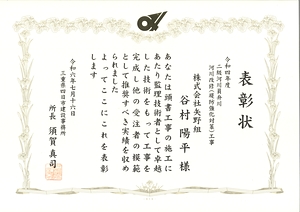 表彰状
令和四年度
二級河川員弁川
河川改修(堤防強化対策)工事
株式会社矢野組
谷村陽平様
あなたは頭書工事の施工に
あたり監理技術者として卓越
した技術をもって工事を
完成し他の受注者の模範
として推奨すべき実績を収め
られました
よってここにこれを表彰
します
令和六年七月十六日
三重県四日市建設事務所
所長 須賀真司